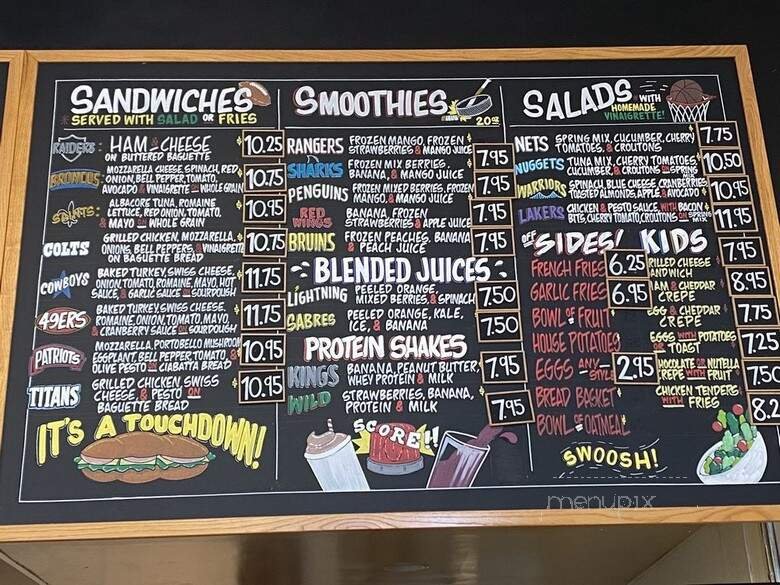 SANDWICHES
SERVED WITH SALAD OR FRIES
RAIDERS: HAM & CHEESE 10.25
ON BUTTERED BAGUETTE
BRONCOS: MOZZARELLA CHEESE, SPINACH, RED
ONION, BELL PEPPER, TOMATO, 10.75
AVOCADO & VINAIGRETTE ON WHOLE GRAIN
SAINTS: ALBACORE TUNA, ROMAINE
LETTUCE, RED ONION, TOMATO, 10.95
& MAYO ON WHOLE GRAIN
COLTS GRILLED CHICKEN, MOZZARELLA,
ONIONS, BELL PEPPERS, & VINAIGRETTE 10.75
ON BAGUETTE BREAD
COWBOYS BAKED TURKEY, SWISS CHEESE,
ONION, TOMATO, ROMAINE, MAYO, HOT 11.75
SAUCE, & GARLIC SAUCE ON SOURDOUGH
49ERS BAKED TURKEY, SWISS CHEESE,
ROMAINE, ONION, TOMATO, MAYO 11.75
& CRANBERRY SAUCE ON SOURDOUGH
PATRIOTS MOZZARELLA, PORTOBELLO MUSHROOM
EGGPLANT, BELL PEPPER, TOMATO, & 10.95
OLIVE PESTO ON CIABATTA BREAD
TITANS GRILLED CHICKEN, SWISS
CHEESE, & PESTO ON 10.95
BAGUETTE BREAD
IT'S A TOUCHDOWN!
SMOOTHIES
20oz
RANGERS FROZEN MANGO, FROZEN
STRAWBERRIES & MANGO JUICE 7.95
SHARKS FROZEN MIX BERRIES,
BANANA, & MANGO JUICE 7.95
PENGUINS FROZEN MIXED BERRIES, FROZEN
MANGO, & MANGO JUICE 7.95
RED WINGS BANANA, FROZEN
STRAWBERRIES & APPLE JUICE
BRUINS FROZEN PEACHES, BANANA 7.95
& PEACH JUICE
BLENDED JUICES
LIGHTNING PEELED ORANGE,
MIXED BERRIES, & SPINACH 7.50
SABRES PEELED ORANGE, KALE,
ICE, & BANANA 7.50
PROTEIN SHAKES
KINGS BANANA, PEANUT BUTTER,
WHEY PROTEIN & MILK 7.95
WILD STRAWBERRIES, BANANA,
PROTEIN & MILK 7.95
SCORE!!
SALADS WITH HOMEMADE VINAIGRETTE!
NETS SPRING MIX, CUCUMBER, CHERRY 7.75
TOMATOES, & CROUTONS
NUGGETS TUNA MIX, CHERRY TOMATOES, 10.50
CUCUMBER, & CROUTONS ON SPRING MIX
WARRIORS SPINACH, BLUE CHEESE, CRANBERRIES 10.95
TOASTED ALMONDS, APPLE & AVOCADO
LAKERS CHICKEN & PESTO SAUCE, WITH BACON 11.95
BITS, CHERRY TOMATO, CROUTONS ON SPRING MIX
OFF SIDES!
FRENCH FRIES 6.25
GARLIC FRIES 6.95
BOWL OF FRUIT
HOUSE POTATOES
EGGS ANY STYLE 2.95
BREAD BASKET
BOWL OF OATMEAL
KIDS
RILLED CHEESE 7.95
ANDWICH
AM & CHEDDAR 8.95
CREPE
EGG & CHEDDAR 7.75
CREPE
EGGS WITH POTATOES 7.25
OR TOAST
HOCOLATE OR NUTELLA 7.50
CREPE WITH FRUIT
CHICKEN TENDERS 8.2
WITH FRIES
SWOOSH!
menupix